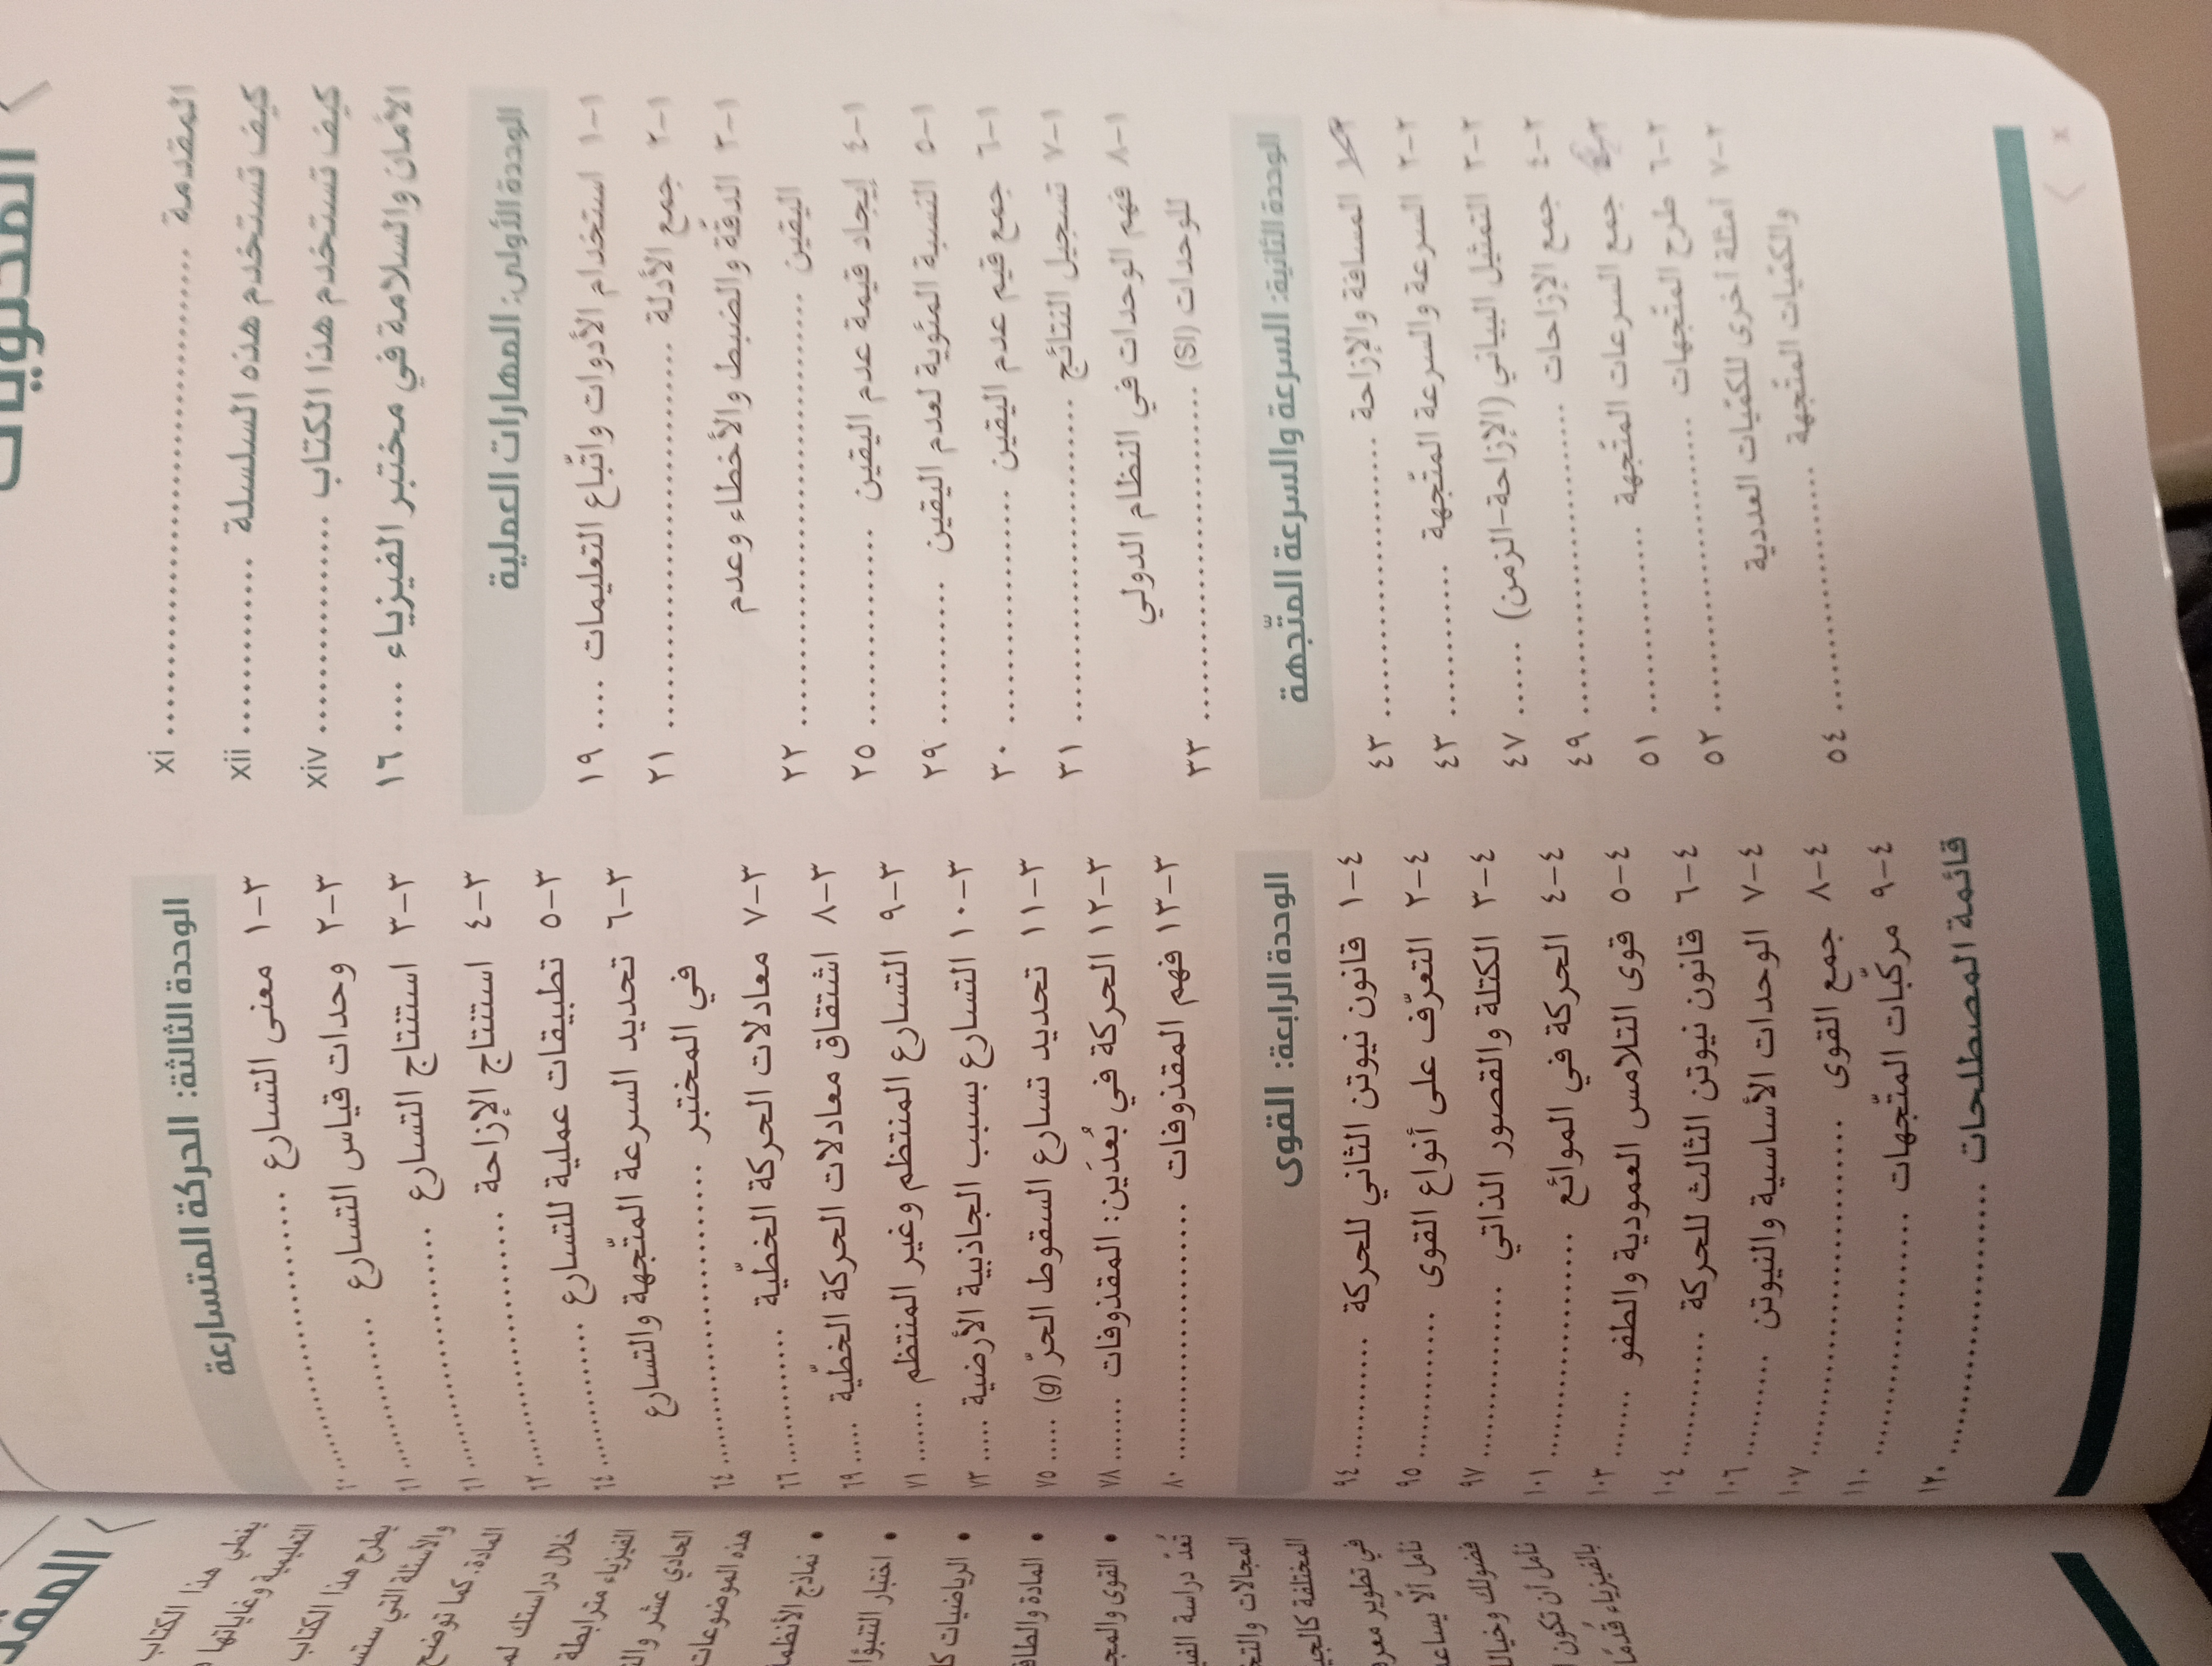 المحتويات
المقدمة ..................................... xi
كيف تستخدم هذه السلسلة ............. xii
كيف تستخدم هذا الكتاب ................ xiv
الأمان والسلامة في مختبر الفيزياء .... ١٦
الوحدة الأولى: المهارات العملية
١-١ استخدام الأدوات واتّباع التعليمات .... ١٩
١-٢ جمع الأدلة ............................. ٢١
١-٣ الدقّة والضبط والأخطاء وعدم
اليقين ................................. ٢٢
١-٤ إيجاد قيمة عدم اليقين ............... ٢٥
١-٥ النسبة المئوية لعدم اليقين ........... ٢٩
١-٦ جمع قيم عدم اليقين .................. ٣٠
١-٧ تسجيل النتائج ......................... ٣١
١-٨ فهم الوحدات في النظام الدولي
للوحدات (SI) .......................... ٣٣
الوحدة الثانية: السرعة والسرعة المتّجهة
المسافة والإزاحة ...................... ٤٣
٢-٢ السرعة والسرعة المتّجهة ............ ٤٣
٢-٣ التمثيل البياني (الإزاحة-الزمن) ...... ٤٧
٢-٤ جمع الإزاحات ........................ ٤٩
جمع السرعات المتّجهة ............... ٥١
٢-٦ طرح المتّجهات ....................... ٥٢
٢-٧ أمثلة أخرى للكمّيات العددية
والكمّيات المتّجهة .................... ٥٤
x
الوحدة الثالثة: الحركة المتسارعة
٣-١ معنى التسارع ....................... ٦٠
٣-٢ وحدات قياس التسارع .............. ٦١
٣-٣ استنتاج التسارع .................... ٦١
٣-٤ استنتاج الإزاحة ..................... ٦٢
٣-٥ تطبيقات عملية للتسارع ............. ٦٤
٣-٦ تحديد السرعة المتّجهة والتسارع
في المختبر ........................... ٦٤
٣-٧ معادلات الحركة الخطّية ............. ٦٦
٣-٨ اشتقاق معادلات الحركة الخطّية ..... ٦٩
٣-٩ التسارع المنتظم وغير المنتظم ....... ٧١
٣-١٠ التسارع بسبب الجاذبية الأرضية ..... ٧٣
٣-١١ تحديد تسارع السقوط الحرّ (g) ..... ٧٥
٣-١٢ الحركة في بُعدَين: المقذوفات ....... ٧٨
٣-١٣ فهم المقذوفات ...................... ٨٠
الوحدة الرابعة: القوى
٤-١ قانون نيوتن الثاني للحركة ............ ٩٤
٤-٢ التعرّف على أنواع القوى .............. ٩٥
٤-٣ الكتلة والقصور الذاتي ................ ٩٧
٤-٤ الحركة في الموائع .................... ١٠١
٤-٥ قوى التلامس العمودية والطفو ....... ١٠٣
٤-٦ قانون نيوتن الثالث للحركة ............ ١٠٤
٤-٧ الوحدات الأساسية والنيوتن .......... ١٠٦
٤-٨ جمع القوى ............................ ١٠٧
٤-٩ مركّبات المتّجهات ..................... ١١٠
قائمة المصطلحات ....................... ١٢٠
يغطي هذا الكتاب
التعليمية وغاياتها
يطرح هذا الكتاب
والأسئلة التي
المادة. كما توضح
خلال دراستك
الفيزياء مترابطة
الحادي عشر
هذه الموضوعات
• نماذج
• اختبار
• الرياضيات
• المادة
• القوى
تُعدّ دراسة
المجالات
المختلفة
في تطوير
نأمل ألّا
فضولك
نأمل أن تكون
بالفيزياء قُدمًا